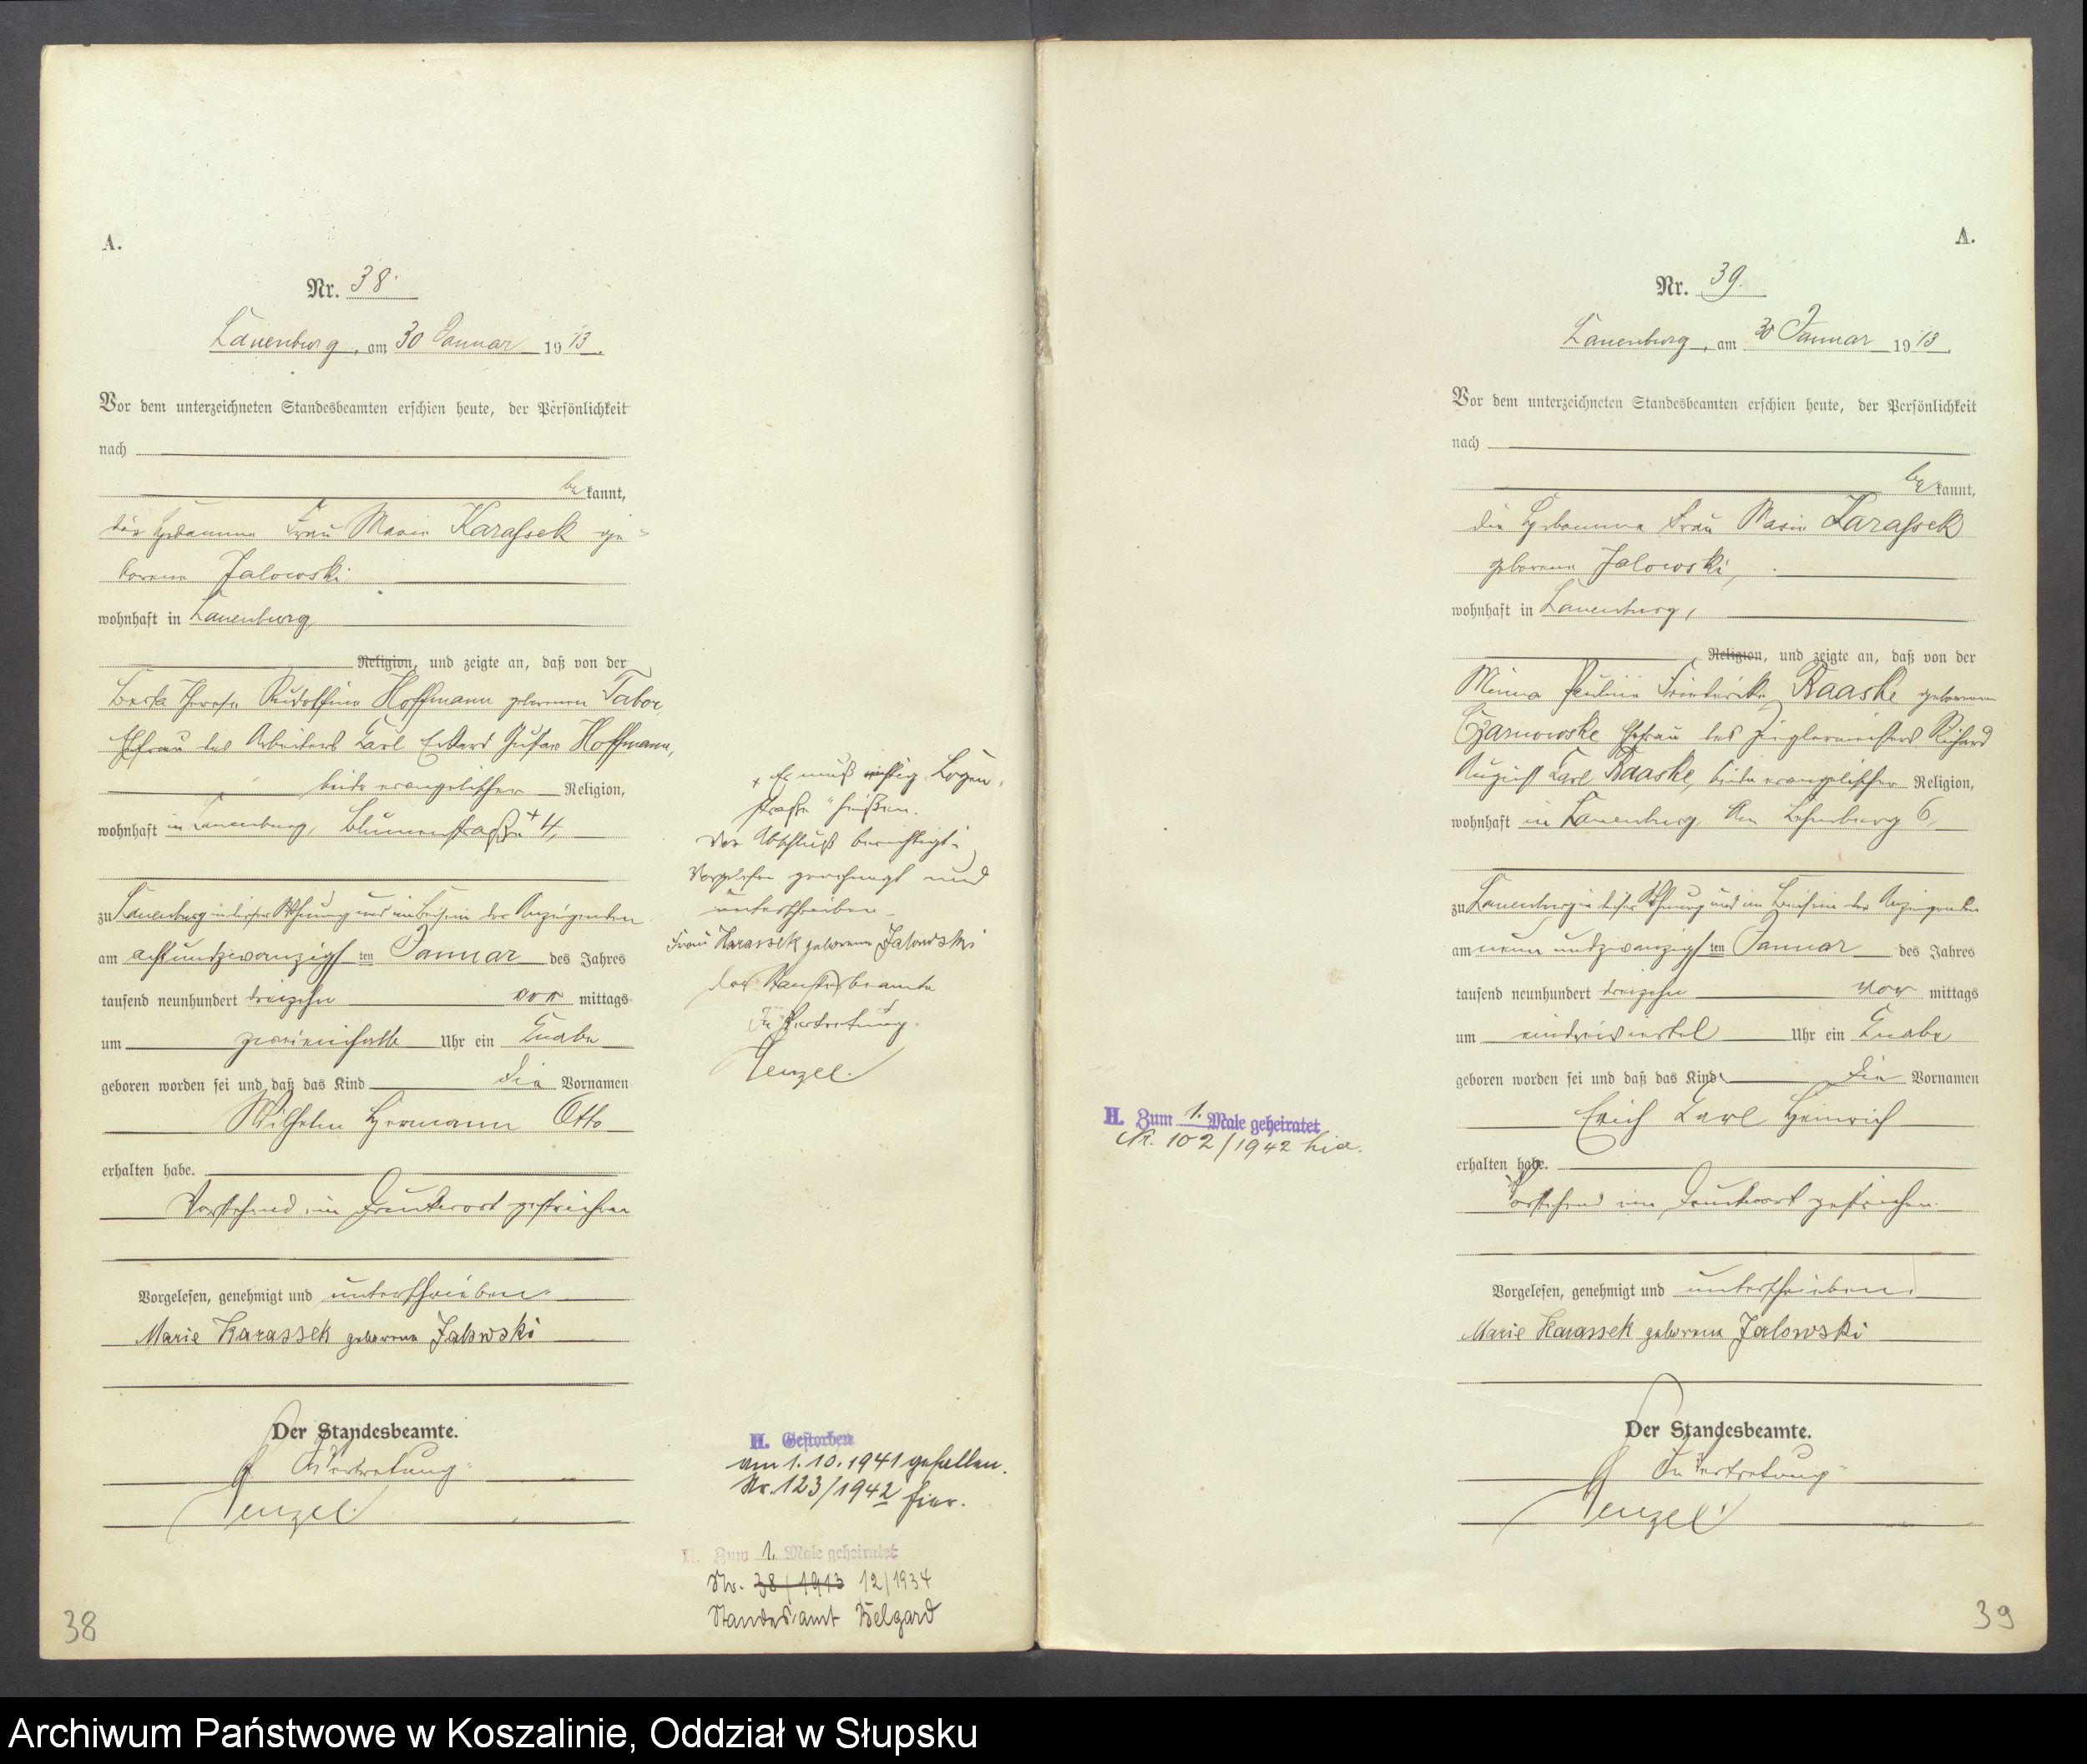 A.
Nr. 38.
Lauenburg, am 30 Januar 1913.
Vor dem unterzeichneten Standesbeamten erschien heute, der Persönlichkeit
nach
bekannt,
die Hebamme Frau Marie Karassek ge-
borene Jalowski
wohnhaft in Lauenburg
Religion, und zeigte an, daß von der
Berta Therese Rudolfine Hoffmann geborenen Tabor,
Ehefrau des Arbeiters Carl Eduard Gustav Hoffmann,
beide evangelischer Religion,
wohnhaft in Lauenburg, Blumenstraße + 4,
zu Lauenburg in dieser Wohnung und im Beisein der Anzeigenden
am achtundzwanzigsten Januar des Jahres
tausend neunhundert dreizehn vor mittags
um zweieinhalb Uhr ein Knabe
geboren worden sei und daß das Kind die Vornamen
Wilhelm Hermann Otto
erhalten habe.
Vorstehend ein Druckwort gestrichen
Vorgelesen, genehmigt und unterschrieben.
Marie Karassek geborene Jalowski
Der Standesbeamte.
In Vertretung.
Wenzel
+ Es muß richtig
straße" heißen.
Der Abschluß berichtigt.
Vorgelesen genehmigt und
unterschrieben.
Frau Karassek geborene Jalowski
Der Standesbeamte
In Vertretung.
Wenzel.
H. Gestorben
am 1.10.1941 gefallen.
Nr. 123/1942 hier.
H. Zum 1. Male geheiratet
Nr. 38/1913 12/1934
Standesamt Belgard
38
A.
Nr. 39.
Lauenburg, am 30 Januar 1913.
Vor dem unterzeichneten Standesbeamten erschien heute, der Persönlichkeit
nach
bekannt,
die Hebamme Frau Marie Karassek
geborene Jalowski,
wohnhaft in Lauenburg,
Religion, und zeigte an, daß von der
Minna Pauline Friederike Raaske geborenen
Czarnowske Ehefrau des Zieglermeisters Richard
August Carl Raaske, beide evangelischer Religion,
wohnhaft in Lauenburg, Am Lehmberg 6,
zu Lauenburg in dieser Wohnung und im Beisein der Anzeigenden
am neunundzwanzigsten Januar des Jahres
tausend neunhundert dreizehn vor mittags
um eindreiviertel Uhr ein Knabe
geboren worden sei und daß das Kind die Vornamen
Erich Carl Heinrich
erhalten habe.
Vorstehend ein Druckwort gestrichen.
Vorgelesen, genehmigt und unterschrieben.
Marie Karassek geborene Jalowski
Der Standesbeamte.
In Vertretung
Wenzel
H. Zum 1. Male geheiratet
Nr. 102/1942
39
Archiwum Państwowe w Koszalinie, Oddział w Słupsku